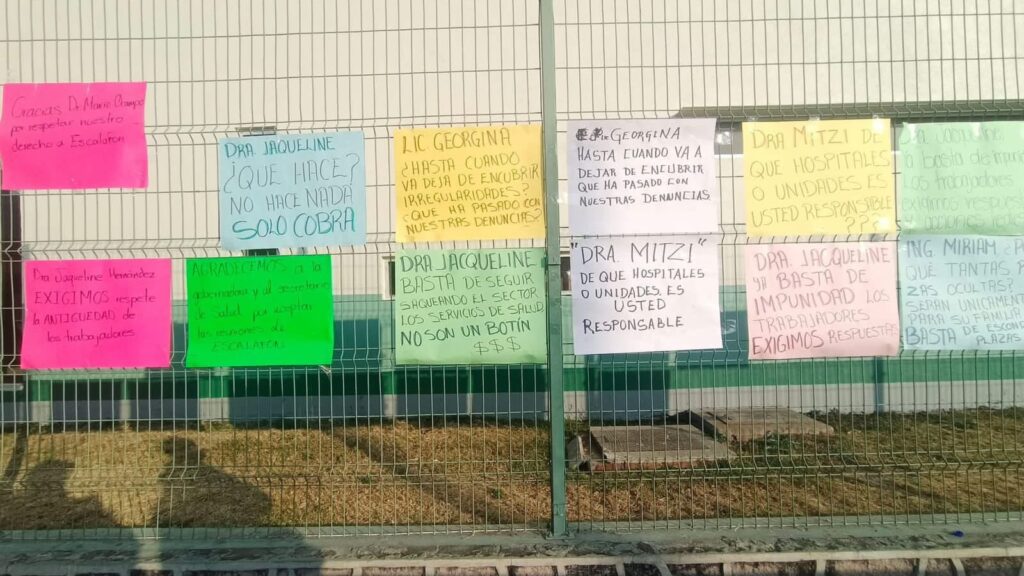 Gracias Dr Mario Ocampo
por respetar nuestro
derecho a Escalafon
DRA JAQUELINE
¿QUE HACE?
NO HACE NADA
SOLO COBRA
LIC GEORGINA
¿HASTA CUANDO
VA DEJA DE ENCUBRIR
IRREGULARIDADES?
¿QUE HA PASADO CON
NUESTRAS DENUNCIAS?
GEORGINA
HASTA CUANDO VA A
DEJAR DE ENCUBRIR
QUE HA PASADO CON
NUESTRAS DENUNCIAS
DRA MITZI DE
QUE HOSPITALES
O UNIDADES ES
USTED RESPONSIBLE
???
Dra. Jaqueline
Ya basta de
los trabajadores
exigimos
Dra Jaqueline Hernández
EXIGIMOS respete
la ANTIGUEDAD de
los trabajadores
AGRADECEMOS a la
gobernadora y al secretario
de Salud por aceptar
las reuniones de
ESCALAFÓN
DRA JACQUELINE
BASTA DE SEGUIR
SAQUEANDO EL SECTOR
LOS SERVICIOS DE SALUD
NO SON UN BOTÍN
$$$
"DRA. MITZI"
DE QUE HOSPITALES
O UNIDADES ES
USTED
RESPONSABLE
DRA. JACQUELINE
YA BASTA DE
IMPUNIDAD LOS
TRABAJADORES
EXIGIMOS RESPUESTAS
ING MIRIAM
QUE TANTAS
ZAS OCULTAS?
SERÁN UNICAMENTE
PARA SU FAMILIA
BASTA DE ESCON
PLAZAS